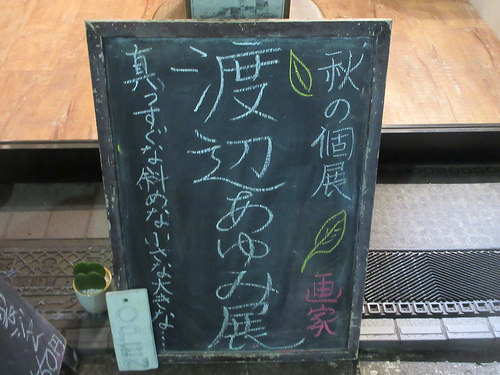 秋の個展
画家
渡辺あゆみ展
真っすぐな斜めな小さな大きな…